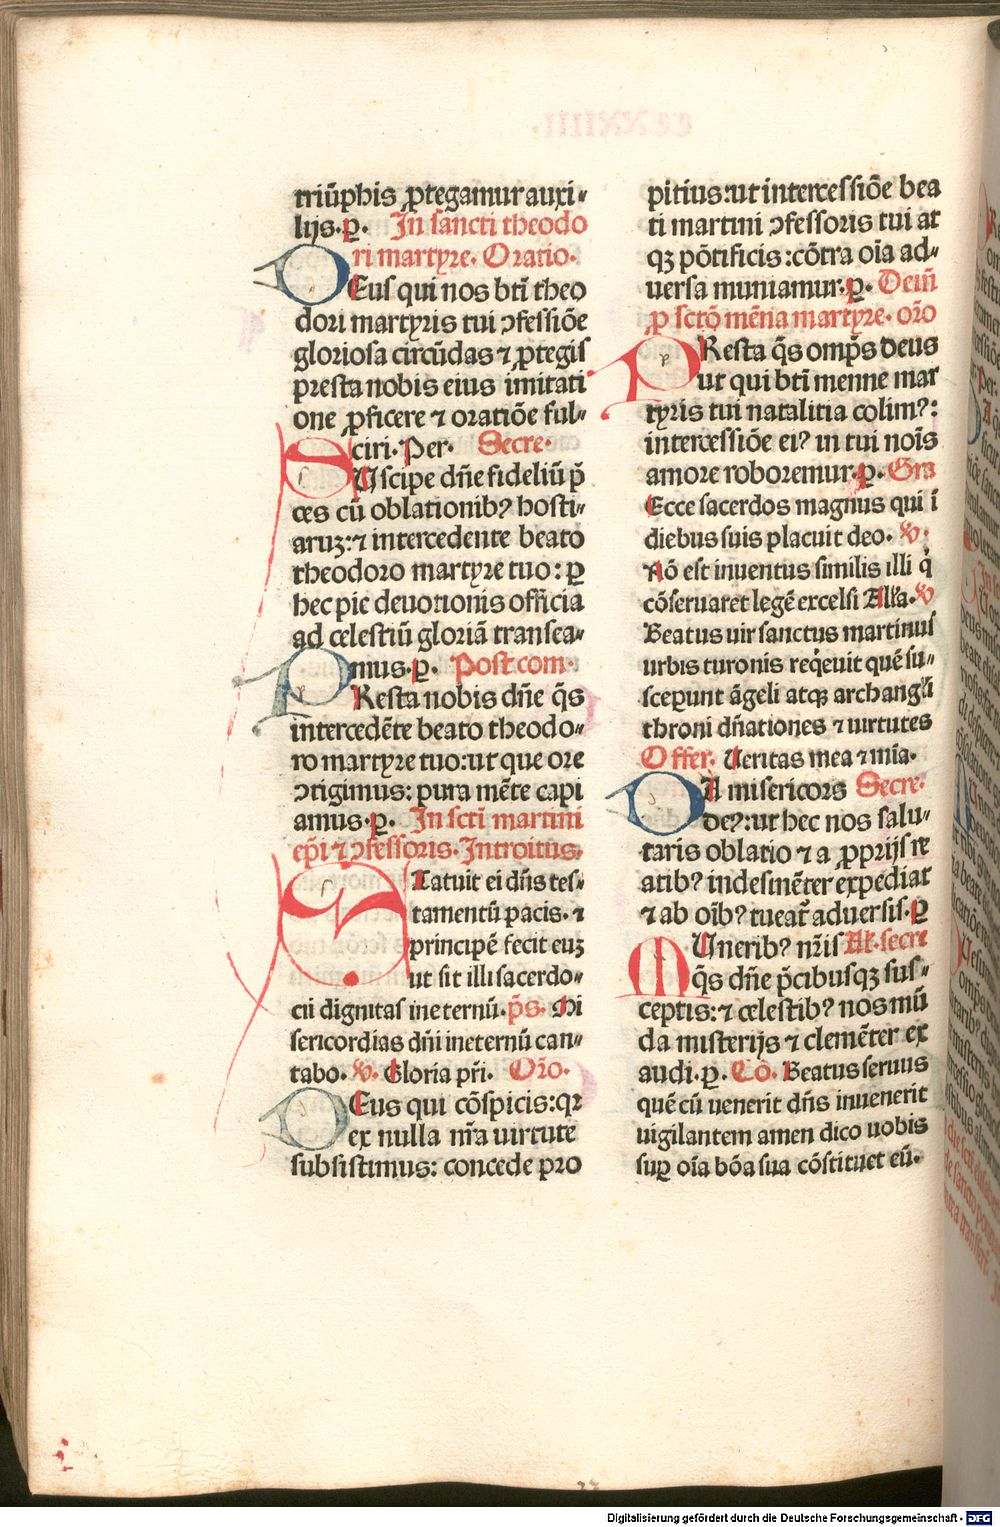 triũphis ꝓtegamur auxi-
lijs. ꝑ. In sancti theodo
ri martyre. Oratio.
DEus qui nos bt̃i theo
dori martyris tui ɔfessiõe
gloriosa circũdas ⁊ ꝓtegis
presta nobis eius imitati
one ꝓficere ⁊ oratiõe ful-
ciri. Per. Secre.
SUscipe dñe fideliũ p̃
ces cũ oblationibꝰ hosti-
aruꝫ: ⁊ intercedente beato
theodoro martyre tuo: ꝑ
hec pie deuotionis officia
ad celestiũ gloriã transea-
mus. ꝑ. Post com.
PResta nobis dñe q̃s
intercedẽte beato theodo-
ro martyre tuo: ut que ore
ɔtigimus: pura mẽte capi
amus. ꝑ. In scti martini
ep̃i ⁊ ɔfessoris. Introitus.
STatuit ei dñs tes-
tamentũ pacis. ⁊
principẽ fecit euꝫ
ut sit illi sacerdo-
cii dignitas ineternũ. p̃s. Mi
sericordias dñi ineternũ can-
tabo. ꝟ. Gloria pr̃i. Oro.
DEus qui cõspicis: qꝛ
ex nulla nr̃a uirtute
subsistimus: concede pro
pitius: ut intercessiõe bea
ti martini ɔfessoris tui at
qꝫ põtificis: cõtra oĩa ad-
uersa muniamur. ꝑ. Deiñ
ꝓ sctõ mẽna martyre. orõ
PResta q̃s omp̃s deus
ut qui bt̃i menne mar
tyris tui natalitia colimꝰ:
intercessiõe eiꝰ in tui noĩs
amore roboremur. ꝑ. Gra
Ecce sacerdos magnus qui ĩ
diebus suis placuit deo. ꝟ.
Nõ est inuentus similis illi q̇
cõseruaret legẽ excelsi Alla. ꝟ
Beatus uir sanctus martinus
urbis turonis req̇euit quẽ su-
scepunt ãgeli atqꝫ archang̃li
throni dñationes ⁊ uirtutes
Offer. Ueritas mea ⁊ mĩa.
DA misericors Secre.
deꝰ: ut hec nos salu-
taris oblatio ⁊ a ꝓprijs re
atibꝰ indesinẽter expediat
⁊ ab oĩbꝰ tueat̃ aduersis. ꝑ
MUneribꝰ nr̃is Al. secre
q̃s dñe p̃cibusqꝫ sus-
ceptis: ⁊ celestibꝰ nos mũ
da misterijs ⁊ clemẽter ex
audi. ꝑ. Co. Beatus seruus
quẽ cũ uenerit dñs inuenerit
uigilantem amen dico uobis
suꝑ oĩa bõa sua cõstituet eũ.
Digitalisierung gefördert durch die Deutsche Forschungsgemeinschaft - DFG